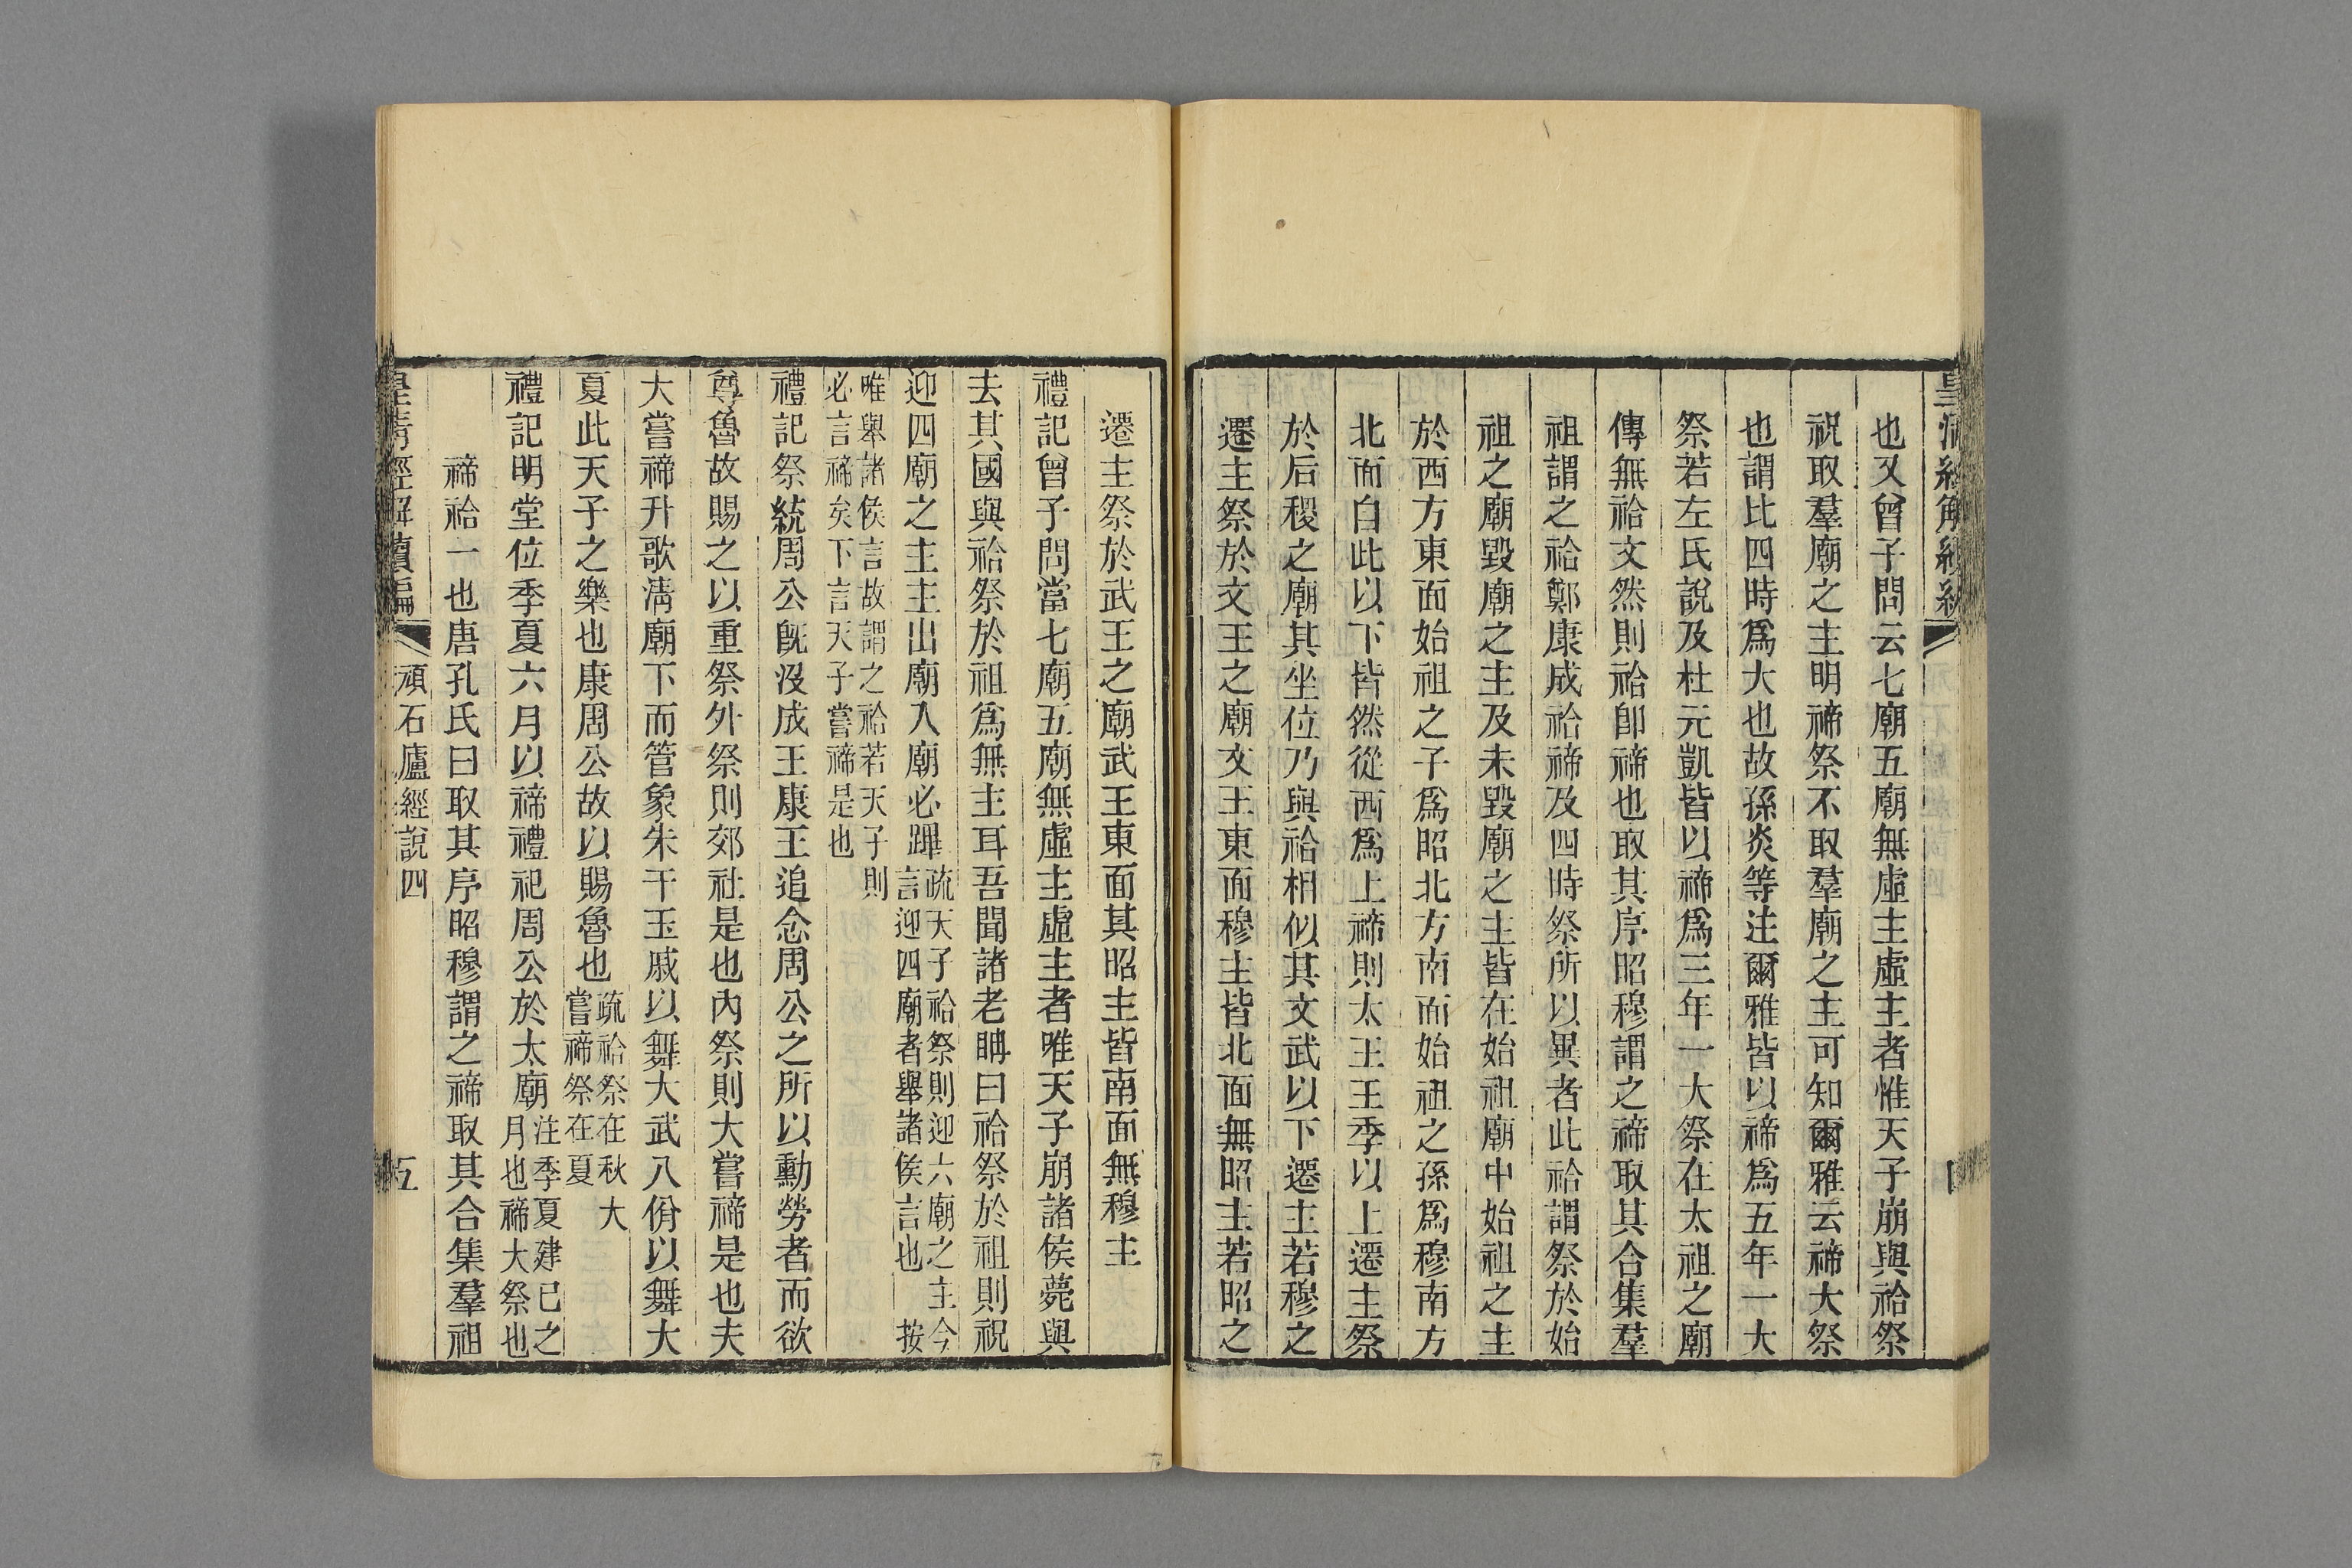 也又曾子問云七廟五廟無虛主虛主者惟天子崩與祫祭
祝取羣廟之主明禘祭不取羣廟之主可知爾雅云禘大祭
也謂比四時爲大也故孫炎等注爾雅皆以禘爲五年一大
祭若左氏說及杜元凱皆以禘爲三年一大祭在太祖之廟
傳無祫文然則祫卽禘也取其序昭穆謂之禘取其合集羣
祖謂之祫鄭康成祫禘及四時祭所以異者此祫謂祭於始
祖之廟毀廟之主及未毀廟之主皆在始祖廟中始祖之主
於西方東面始祖之子爲昭北方南面始祖之孫爲穆南方
北面自此以下皆然從西爲上禘則太王王季以上遷主祭
於后稷之廟其坐位乃與祫相似其文武以下遷主若穆之
遷主祭於文王之廟文王東面穆主皆北面無昭主若昭之
遷主祭於武王之廟武王東面其昭主皆南面無穆主
禮記曾子問當七廟五廟無虛主虛主者唯天子崩諸侯薨與
去其國與祫祭於祖爲無主耳吾聞諸老聃曰祫祭於祖則祝
迎四廟之主主出廟入廟必蹕
疏天子祫祭則迎六廟之主今
言迎四廟者舉諸侯言也 按
唯舉諸侯言故謂之祫若天子則
必言禘矣下言天子嘗禘是也
禮記祭統周公旣沒成王康王追念周公之所以勳勞者而欲
尊魯故賜之以重祭外祭則郊社是也內祭則大嘗禘是也夫
大嘗禘升歌淸廟下而管象朱干玉戚以舞大武八佾以舞大
夏此天子之樂也康周公故以賜魯也
疏祫祭在秋大
嘗禘祭在夏
禮記明堂位季夏六月以禘禮祀周公於太廟
注季夏建巳之
月也禘大祭也
禘祫一也唐孔氏曰取其序昭穆謂之禘取其合集羣祖
皇淸經解續編
頑石廬經說四
五